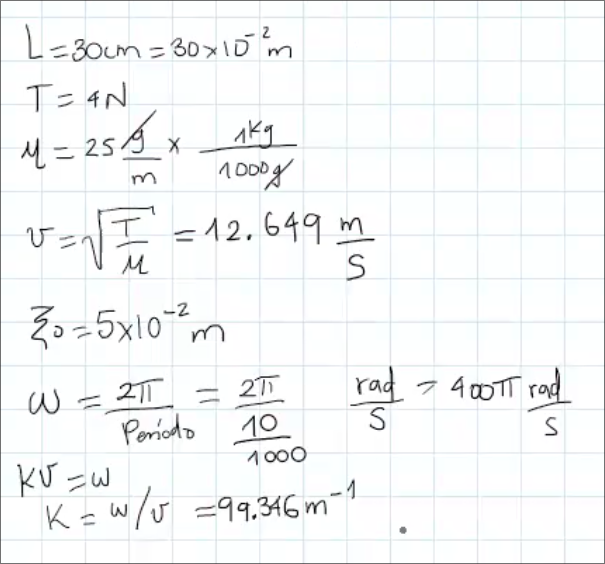 L=30cm=30×10⁻²m
T=4N
μ=25 g/m × 1Kg/1000g
v=√(T/μ) =12.649 m/s
ξ₀=5×10⁻²m
ω = 2π/Período = 2π/(10/1000) rad/s = 400π rad/s
Kv=ω
K=ω/v =99.346m⁻¹